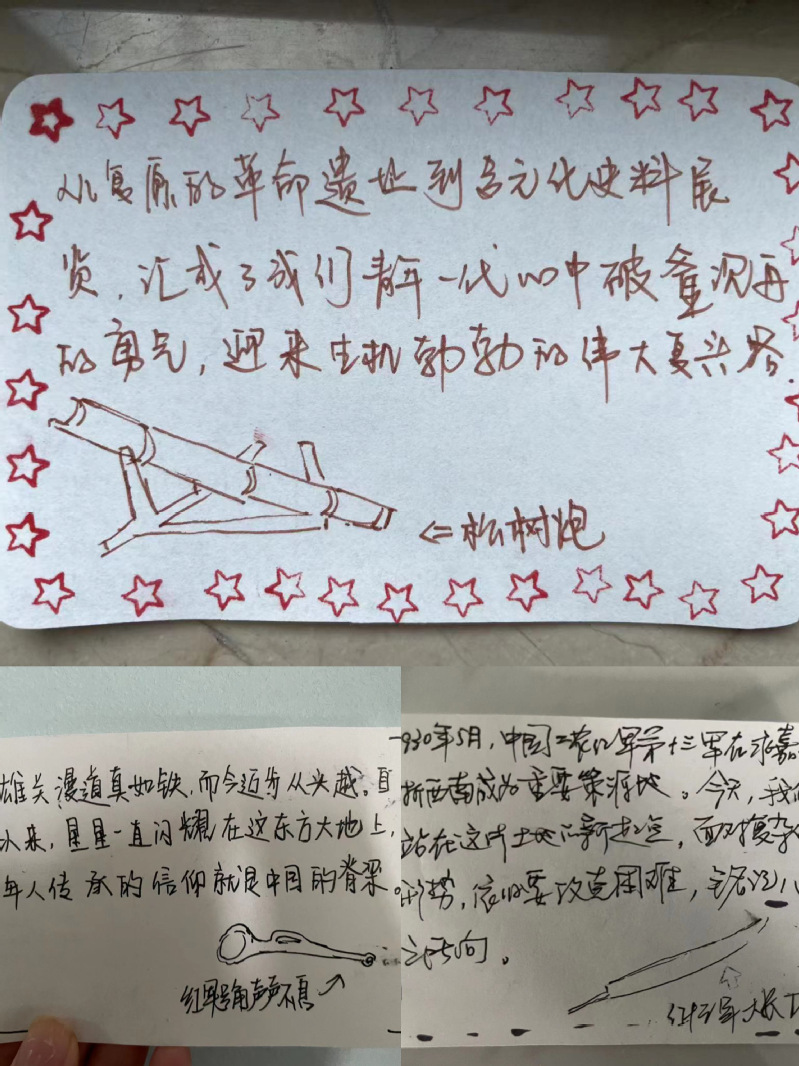 从复原的革命遗址到多元化史料展
览,汇成了我们青年一代心中破釜沉舟
的勇气,迎来生机勃勃的伟大复兴路.
⇐松树炮
雄关漫道真如铁,而今迈步从头越。自
以来,星星一直闪耀在这东方大地上,
年人传承的信仰就是中国的脊梁。
红军号角声声不息
一930年5月,中国工农红军第十三军在永嘉
浙西南成为重要策源地。今天,我们
站在这片土地的新起点,面对复杂
形势,依旧要攻克困难,
方向。
红十三军大